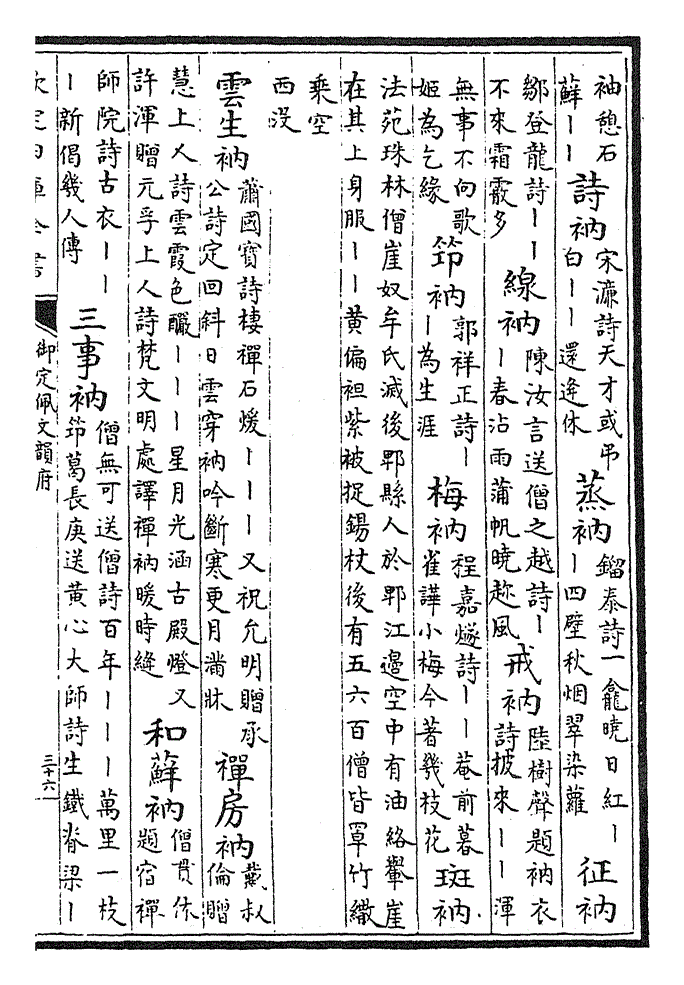 袖憩石
蘚丨丨
詩衲
宋濂詩天才或弔
白丨丨還逢休
蒸衲
鎦泰詩一龕曉日紅丨
丨四壁秋烟翠染蘿
征衲
鄒登龍詩丨丨
不來霜霰多
線衲
陳汝言送僧之越詩丨
丨春沾雨蒲帆曉趂風
戒衲
陸樹聲題衲衣
詩披來丨丨渾
無事不向歌
姬為乞緣
笻衲
郭祥正詩丨
丨為生涯
梅衲
程嘉燧詩丨丨菴前暮
雀譁小梅今著幾枝花
斑衲
法苑珠林僧崖奴牟氏滅後郫縣人於郫江邊空中有油絡轝崖
在其上身服丨丨黄偏袒紫被捉錫杖後有五六百僧皆罩竹繖
乘空
西没
雲生衲
蕭國寶詩棲禪石煖丨丨丨又祝允明贈承
公詩定回斜日雲穿衲吟斷寒更月滿牀
禪房衲
戴叔
倫贈
慧上人詩雲霞色釅丨丨丨星月光涵古殿燈又
許渾贈元孚上人詩梵文明處譯禪衲暖時縫
和蘚衲
僧貫休
題宿禪
師院詩古衣丨丨
丨新偈幾人傳
三事衲
僧無可送僧詩百年丨丨丨萬里一枝
笻葛長庚送黄心大師詩生鐵脊梁丨
欽定四庫全書
御定佩文韻府
三十六